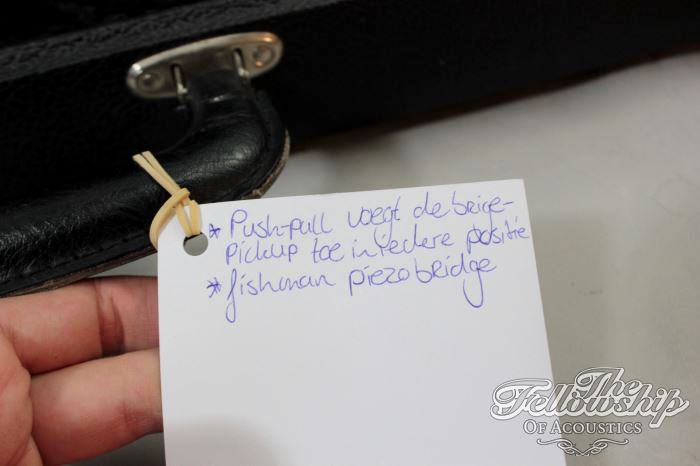 * Push-pull voegt de brige-
pickup toe in iedere positie
* fishman piezo bridge
The
Fellowship
OF ACOUSTICS